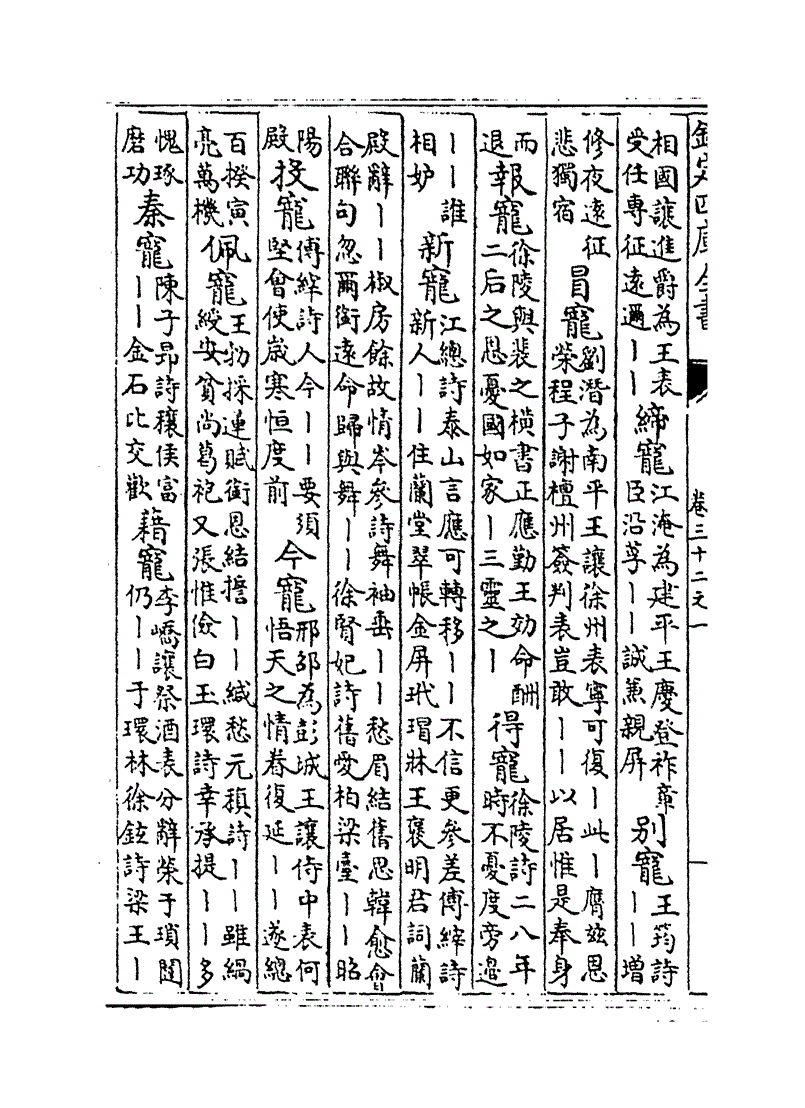 欽定四庫全書
卷三十二之一
相國讓進爵為王表
受任專征遠邇｜｜
締寵
江淹為建平王慶登祚章
臣沿莩｜｜誠兼親屏
别寵
王筠詩
｜｜增
修夜遠征
悲獨宿
冒寵
劉潛為南平王讓徐州表寧可復｜此｜膺兹恩
榮程子謝檀州簽判表豈敢｜｜以居惟是奉身
而
退
報寵
徐陵與裴之横書正應勤王効命酬
二后之恩憂國如家｜三靈之｜
得寵
徐陵詩二八年
時不憂度旁邉
｜｜誰
相妒
新寵
江總詩泰山言應可轉移｜｜不信更參差傅縡詩
新人｜｜住蘭堂翠帳金屏玳瑁牀王褒明君詞蘭
殿辭｜｜椒房餘故情岑參詩舞袖垂｜｜愁眉結舊思韓愈會
合聯句忽爾銜遠命歸與舞｜｜徐賢妃詩舊愛柏梁臺｜｜昭
陽
殿
投寵
傅縡詩人今｜｜要須
堅會使歲寒恒度前
今寵
邢邵為彭城王讓侍中表何
悟天之情眷復延｜｜遂總
百揆寅
亮萬機
佩寵
王勃採蓮賦銜恩結誓｜｜緘愁元稹詩｜｜雖緺
綬安貧尚葛袍又張惟儉白玉環詩幸承提｜｜多
愧琢
磨功
秦寵
陳子昻詩穰侯富
｜｜金石比交歡
藉寵
李嶠讓祭酒表分辭榮于瑣闥
仍｜｜于環林徐鉉詩梁王｜